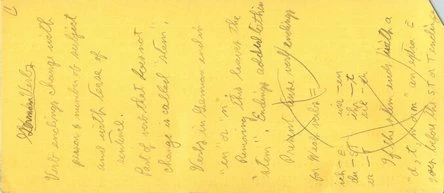 German Verbs
Verb endings change with
person & number of subject
and with tense of
Part of verb that does not
change is called stem.
Verbs in German end in
"en" or "n"
Removing this leaves the
"stem". Endings added to this
Present tense verb endings
for Weak verbs =
ich - E wir - en
du - ST ihr - t
er - t sie - en
If the stem ends with a
d, t, n or m an extra E
seen before the ST or T ending